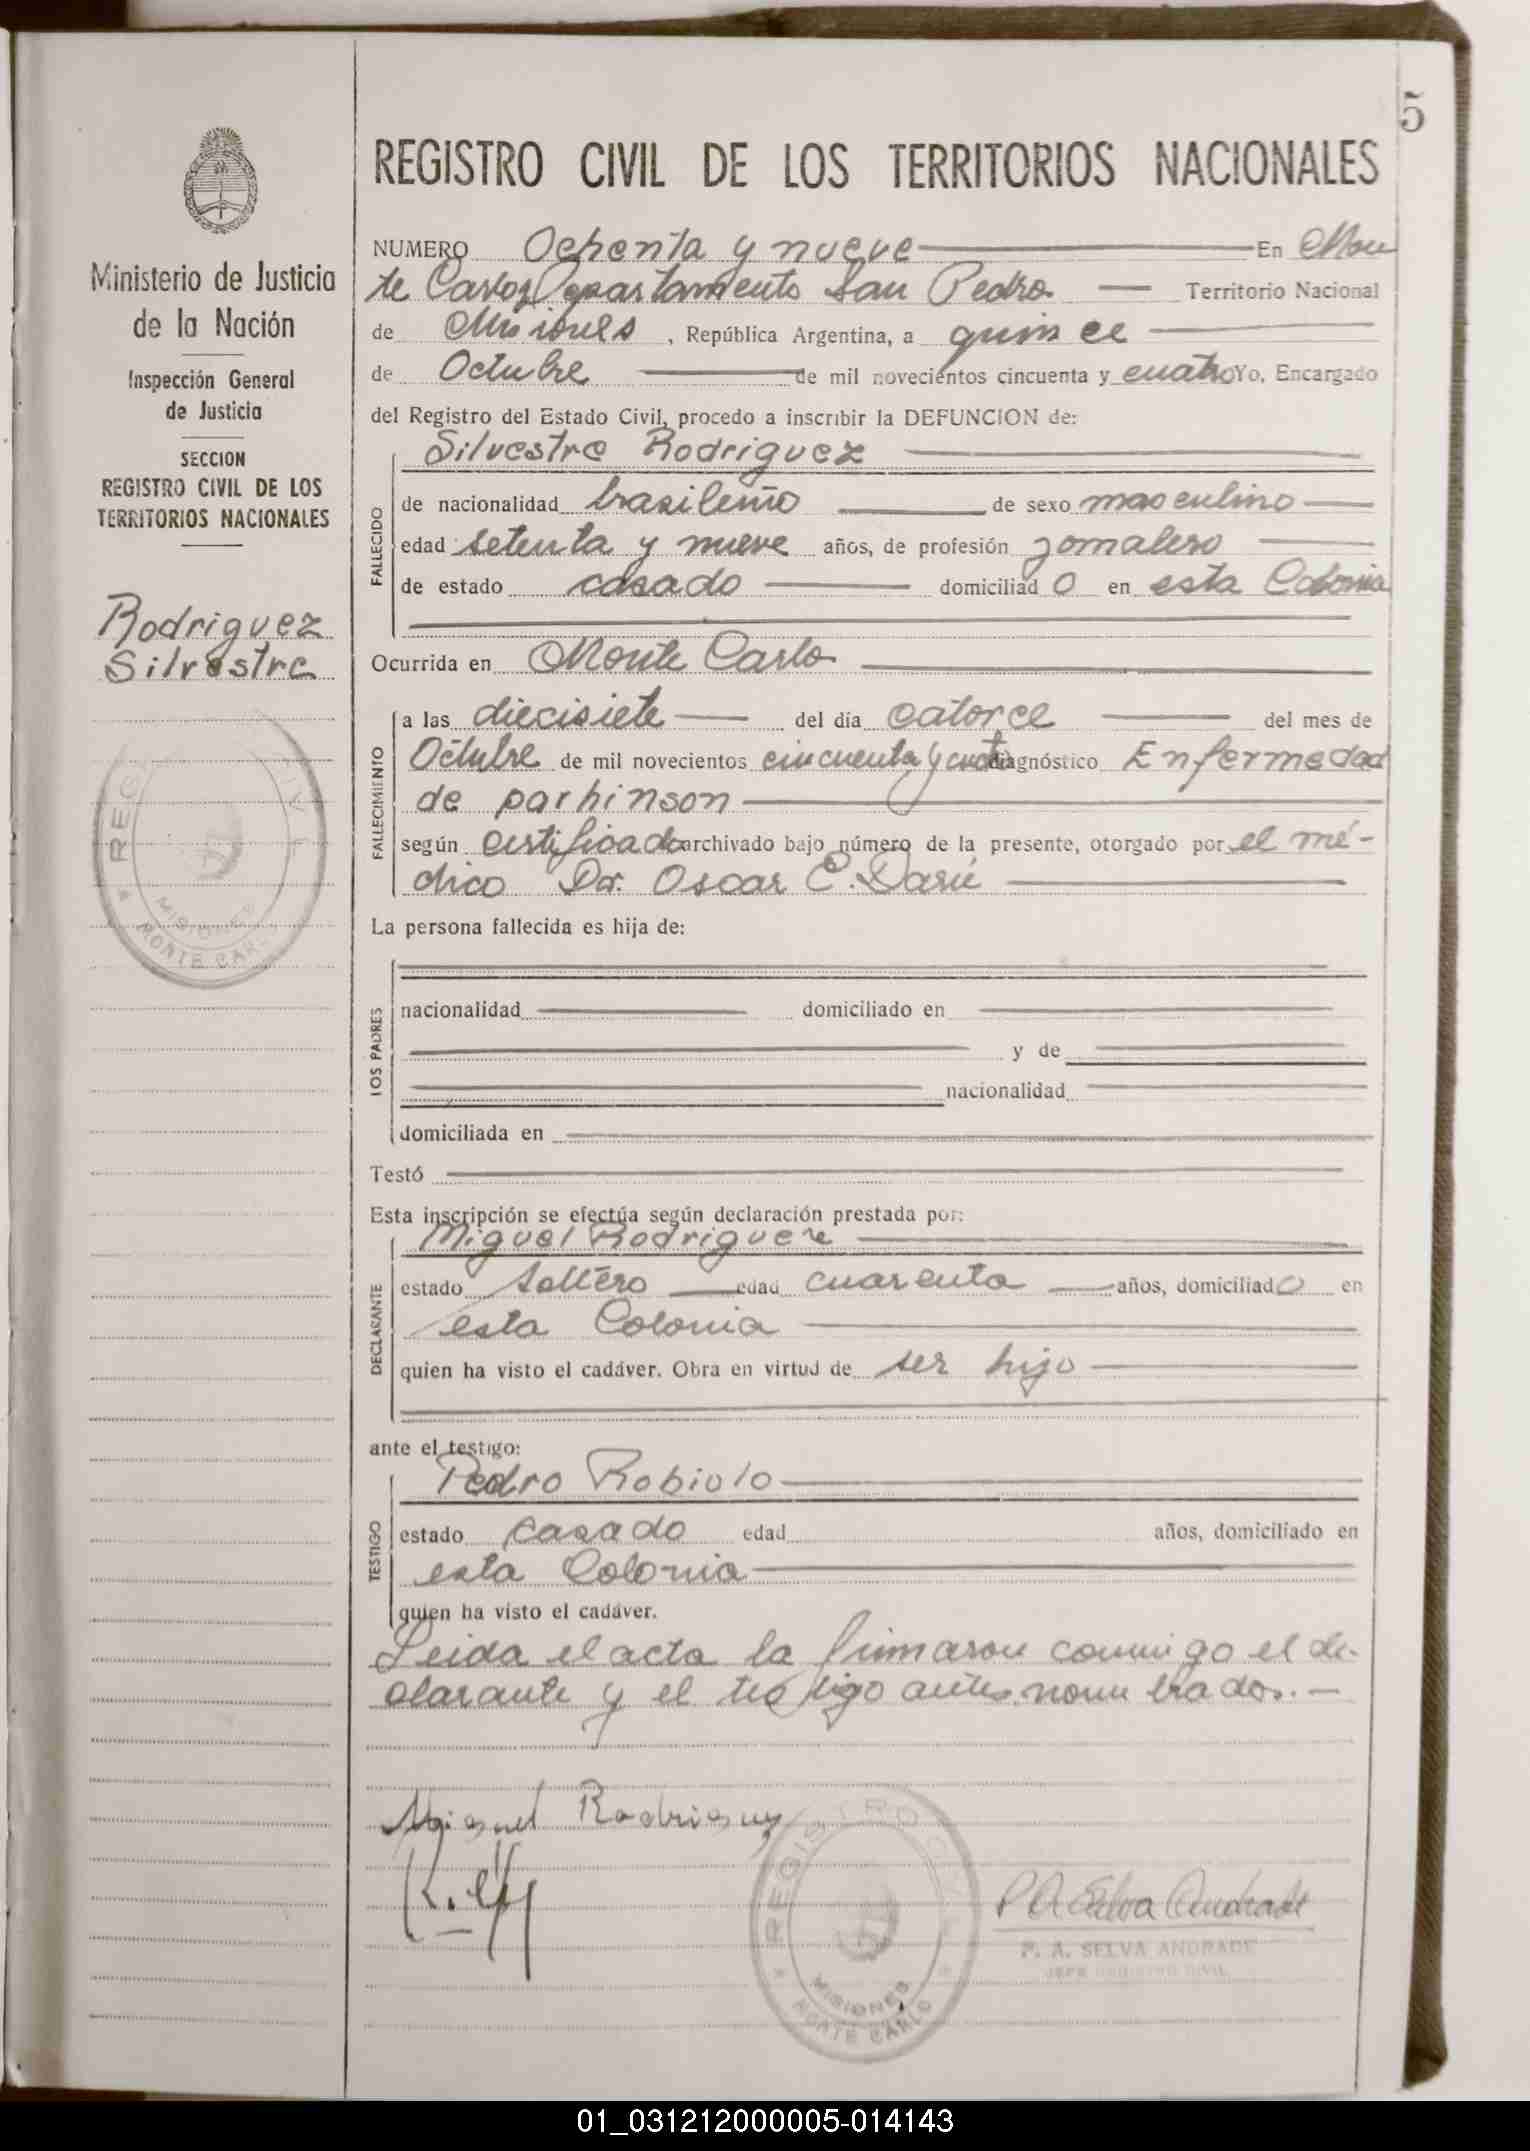 5
REGISTRO CIVIL DE LOS TERRITORIOS NACIONALES
Ministerio de Justicia
de la Nación
Inspección General
de Justicia
SECCION
REGISTRO CIVIL DE LOS
TERRITORIOS NACIONALES
Rodriguez
Silvestre
REG IVIL
MISIONES
MONTE CARL
NUMERO Ochenta y nueve En Mon
te Carlo, Departamento San Pedro Territorio Nacional
de Misiones, República Argentina, a quince
de Octubre de mil novecientos cincuenta y cuatro Yo, Encargado
del Registro del Estado Civil, procedo a inscribir la DEFUNCION de:
FALLECIDO
Silvestre Rodriguez
de nacionalidad brasileño de sexo masculino
edad setenta y nueve años, de profesión jornalero
de estado casado domiciliado en esta Colonia
Ocurrida en Monte Carlo
FALLECIMIENTO
a las diecisiete del día catorce del mes de
Octubre de mil novecientos cincuenta y cuatro diagnóstico Enfermedad
de parhinson
según certificado archivado bajo número de la presente, otorgado por el mé-
dico Dr. Oscar C. Darú
La persona fallecida es hija de:
LOS PADRES
nacionalidad domiciliado en
y de
nacionalidad
domiciliada en
Testó
Esta inscripción se efectúa según declaración prestada por:
DECLARANTE
Miguel Rodriguez
estado soltero edad cuarenta años, domiciliado en
esta Colonia
quien ha visto el cadáver. Obra en virtud de ser hijo
ante el testigo:
TESTIGO
Pedro Robiolo
estado casado edad años, domiciliado en
esta Colonia
quien ha visto el cadáver.
Leida el acta la firmaron conmigo el de-
clarante y el testigo antes nombrados.-
Miguel Rodriguez
REGISTRO CIVIL
MISIONES
MONTE CARLO
P A Selva Andrade
P. A. SELVA ANDRADE
JEFE REGISTRO CIVIL
01_031212000005-014143